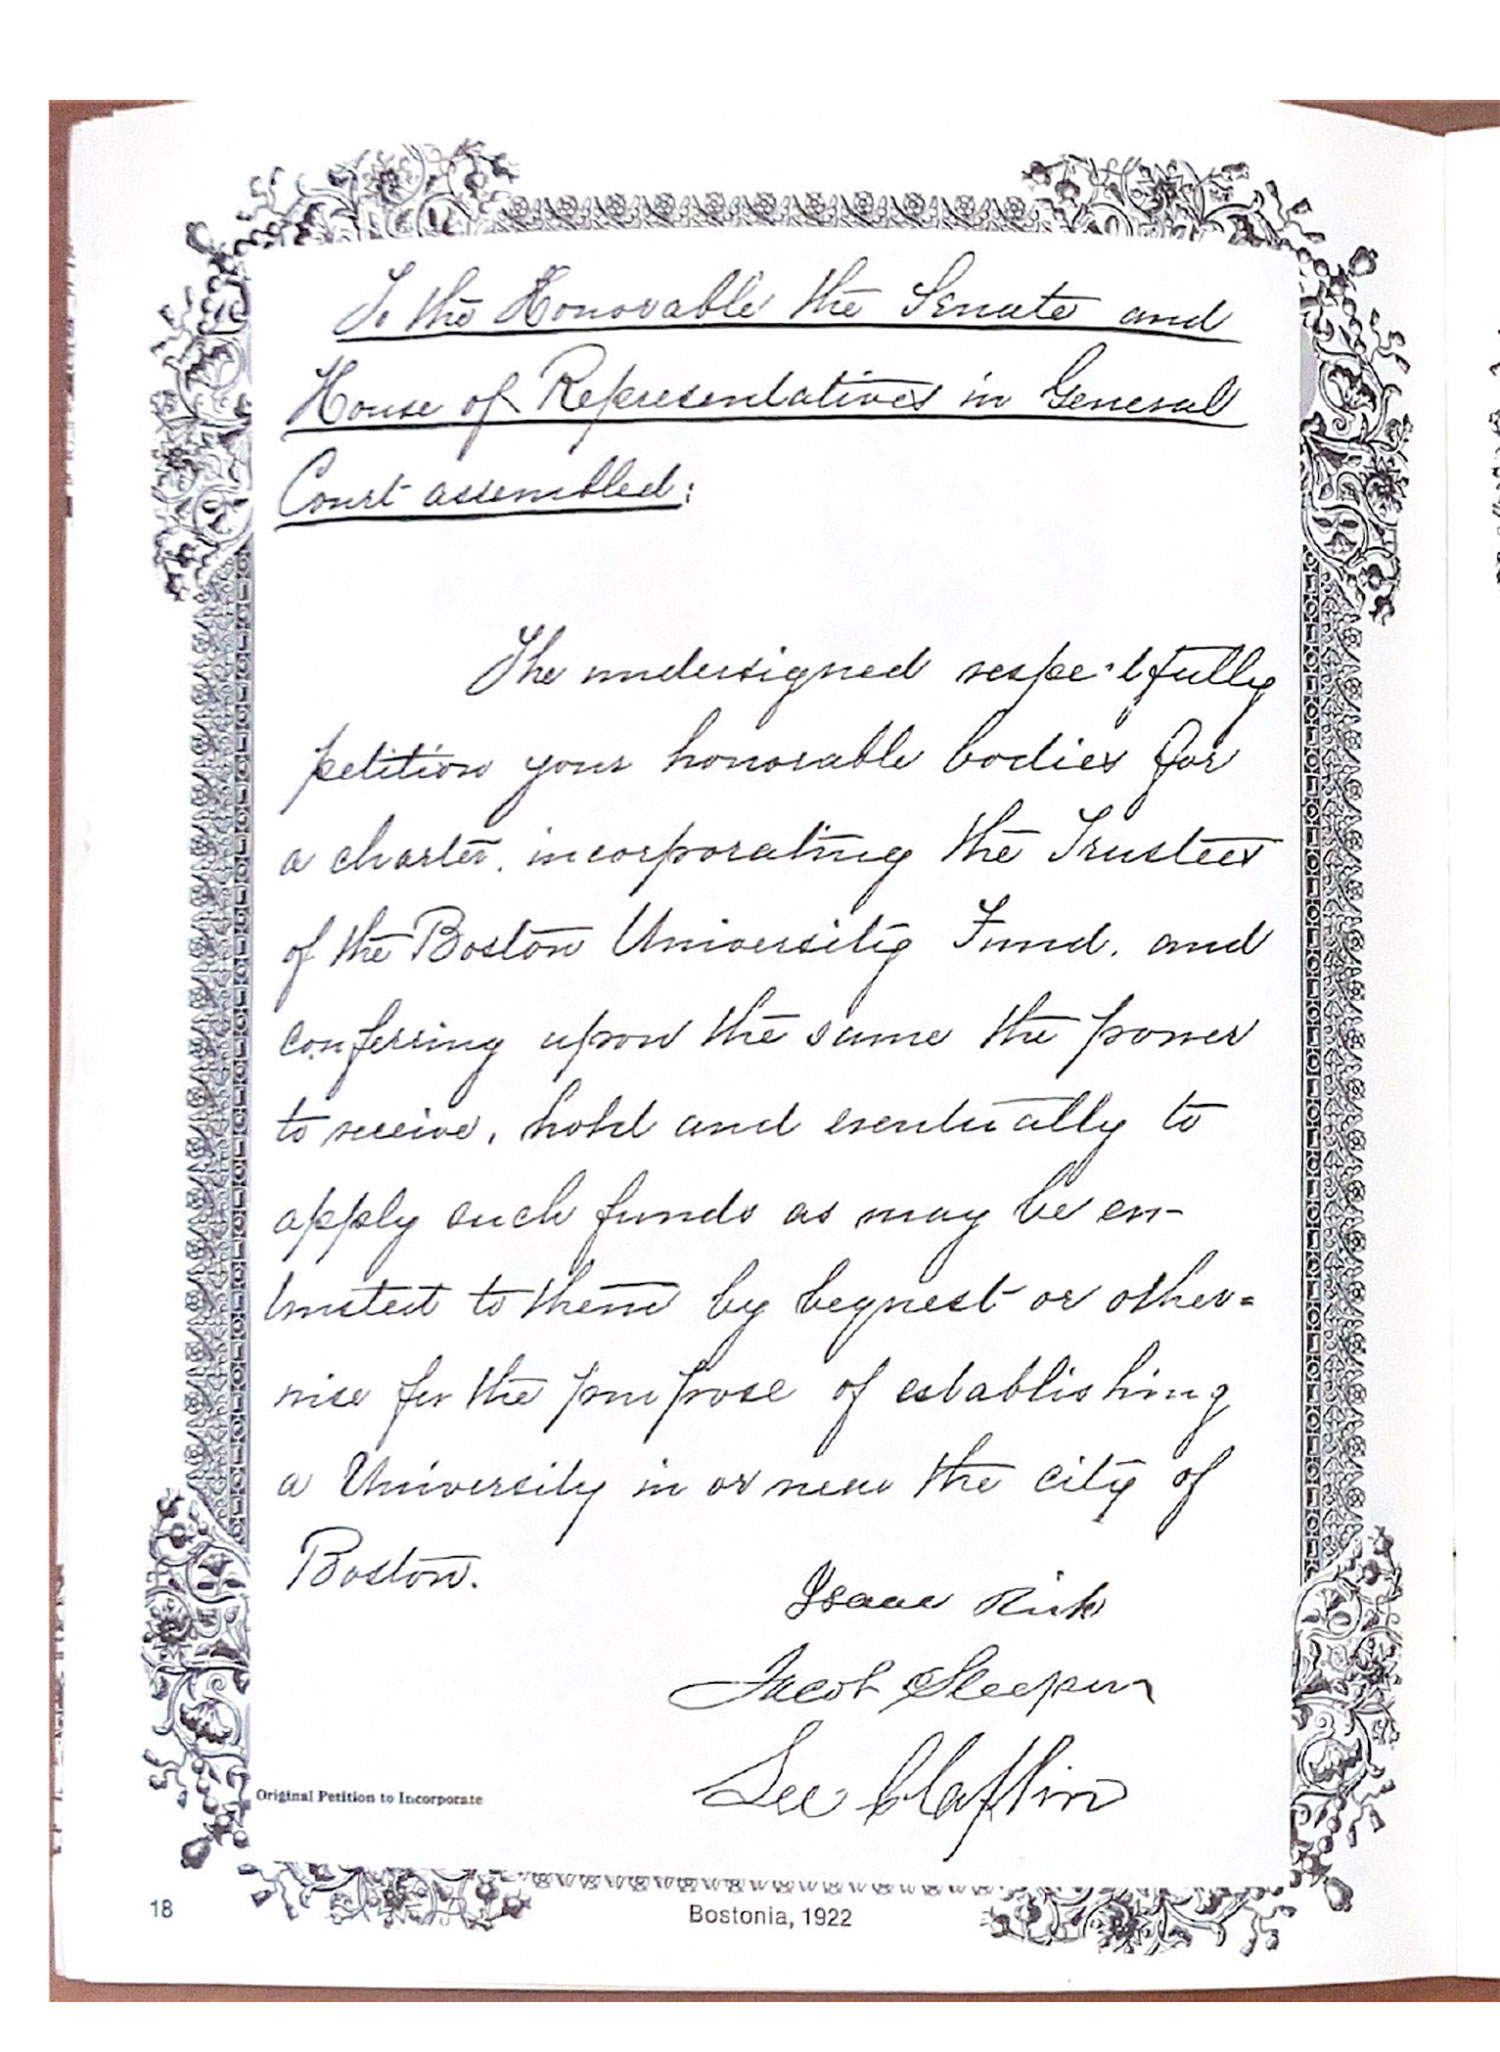 To the Honorable the Senate and
House of Representatives in General
Court assembled:
The undersigned respectfully
petition your honorable bodies for
a charter, incorporating the Trustees
of the Boston University Fund, and
conferring upon the same the power
to receive, hold and eventually to
apply such funds as may be en-
trusted to them by bequest or other=
wise for the purpose of establishing
a University in or near the city of
Boston.
Isaac Rich
Jacob Sleeper
Lee Claflin
Original Petition to Incorporate
18
Bostonia, 1922